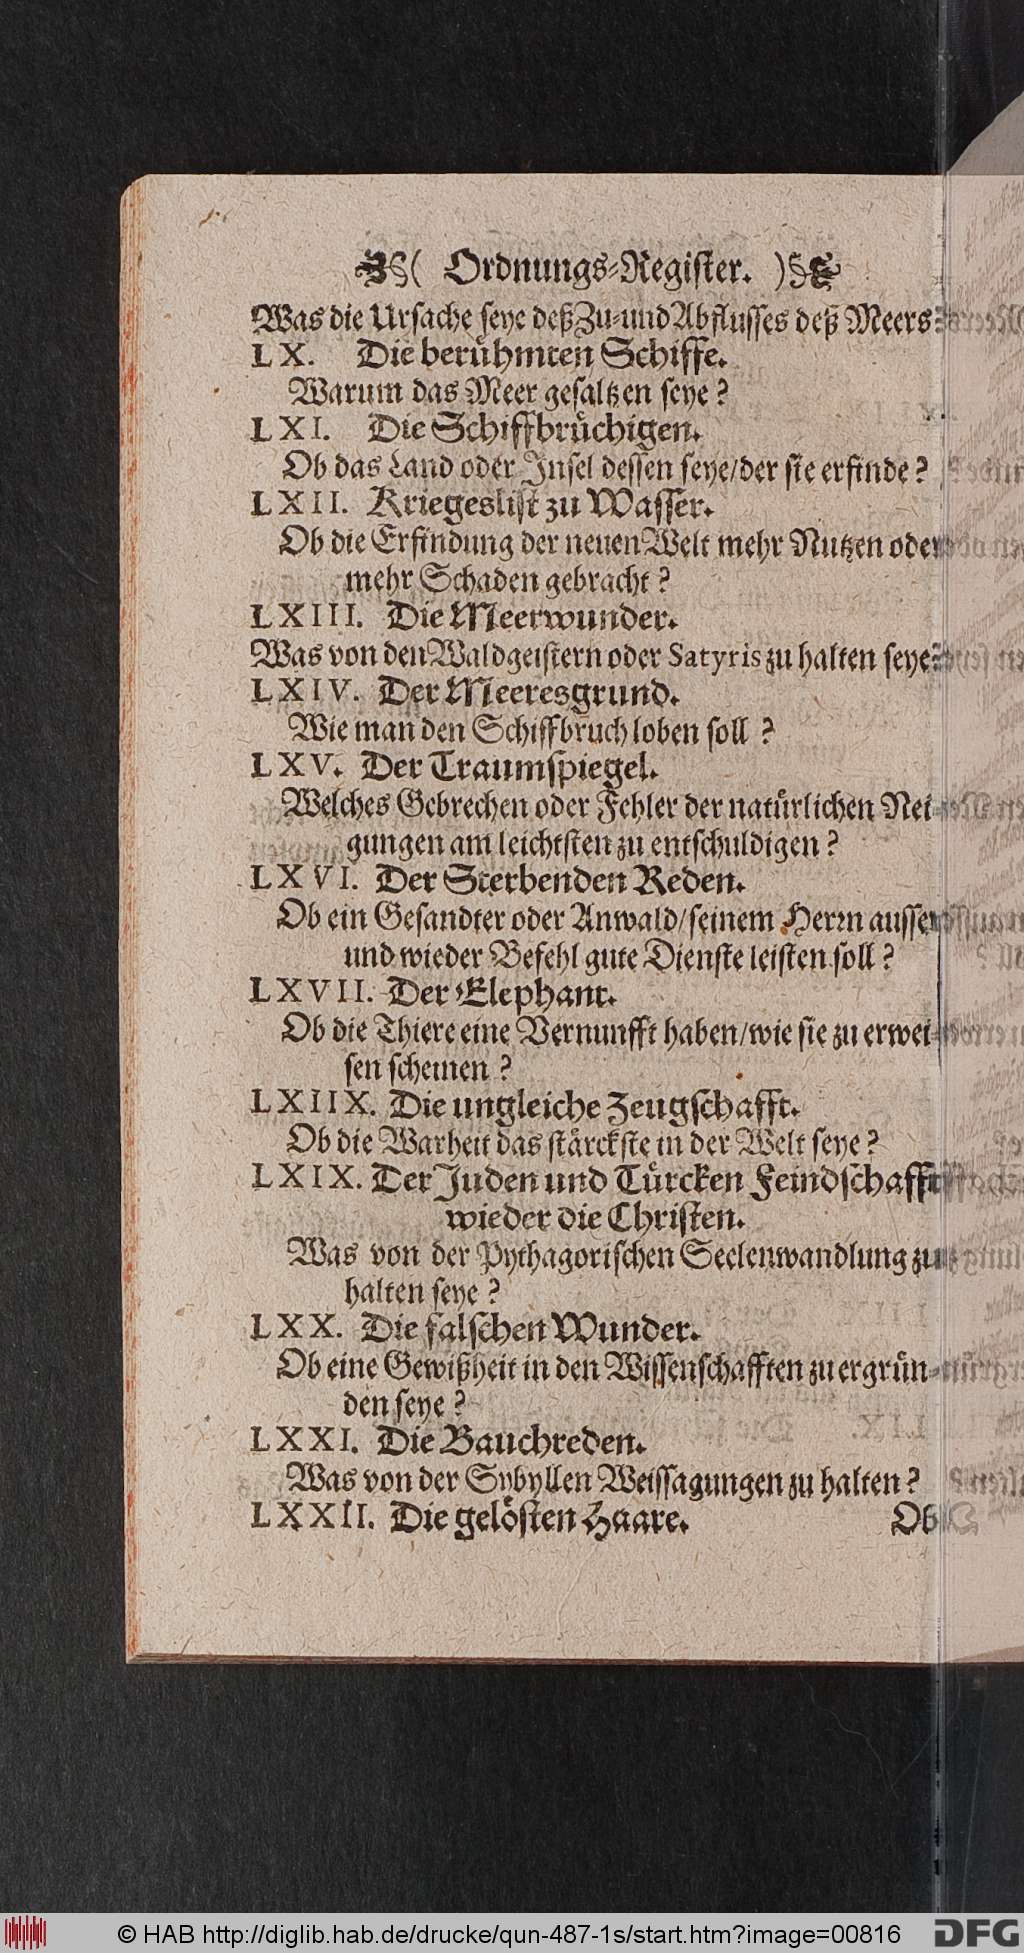 ( Ordnungs-Register. )
Was die Ursache seye deß Zu- und Abflusses deß Meers?
LX. Die berühmten Schiffe.
Warum das Meer gesaltzen seye?
LXI. Die Schiffbrüchigen.
Ob das Land oder Insel dessen seye/der sie erfinde?
LXII. Kriegeslist zu Wasser.
Ob die Erfindung der neuen Welt mehr Nutzen oder
mehr Schaden gebracht?
LXIII. Die Meerwunder.
Was von den Waldgeistern oder Satyris zu halten seye?
LXIV. Der Meeresgrund.
Wie man den Schiffbruch loben soll?
LXV. Der Traumspiegel.
Welches Gebrechen oder Fehler der natürlichen Nei-
gungen am leichtsten zu entschuldigen?
LXVI. Der Sterbenden Reden.
Ob ein Gesandter oder Anwald/seinem Herrn ausser
und wieder Befehl gute Dienste leisten soll?
LXVII. Der Elephant.
Ob die Thiere eine Vernunfft haben/wie sie zu erwei-
sen scheinen?
LXIIX. Die ungleiche Zeugschafft.
Ob die Warheit das stärckste in der Welt seye?
LXIX. Der Juden und Türcken Feindschafft
wieder die Christen.
Was von der Pythagorischen Seelenwandlung zu
halten seye?
LXX. Die falschen Wunder.
Ob eine Gewißheit in den Wissenschafften zu ergrün-
den seye?
LXXI. Die Bauchreden.
Was von der Sybyllen Weissagungen zu halten?
LXXII. Die gelösten Haare.
Ob
© HAB http://diglib.hab.de/drucke/qun-487-1s/start.htm?image=00816
DFG